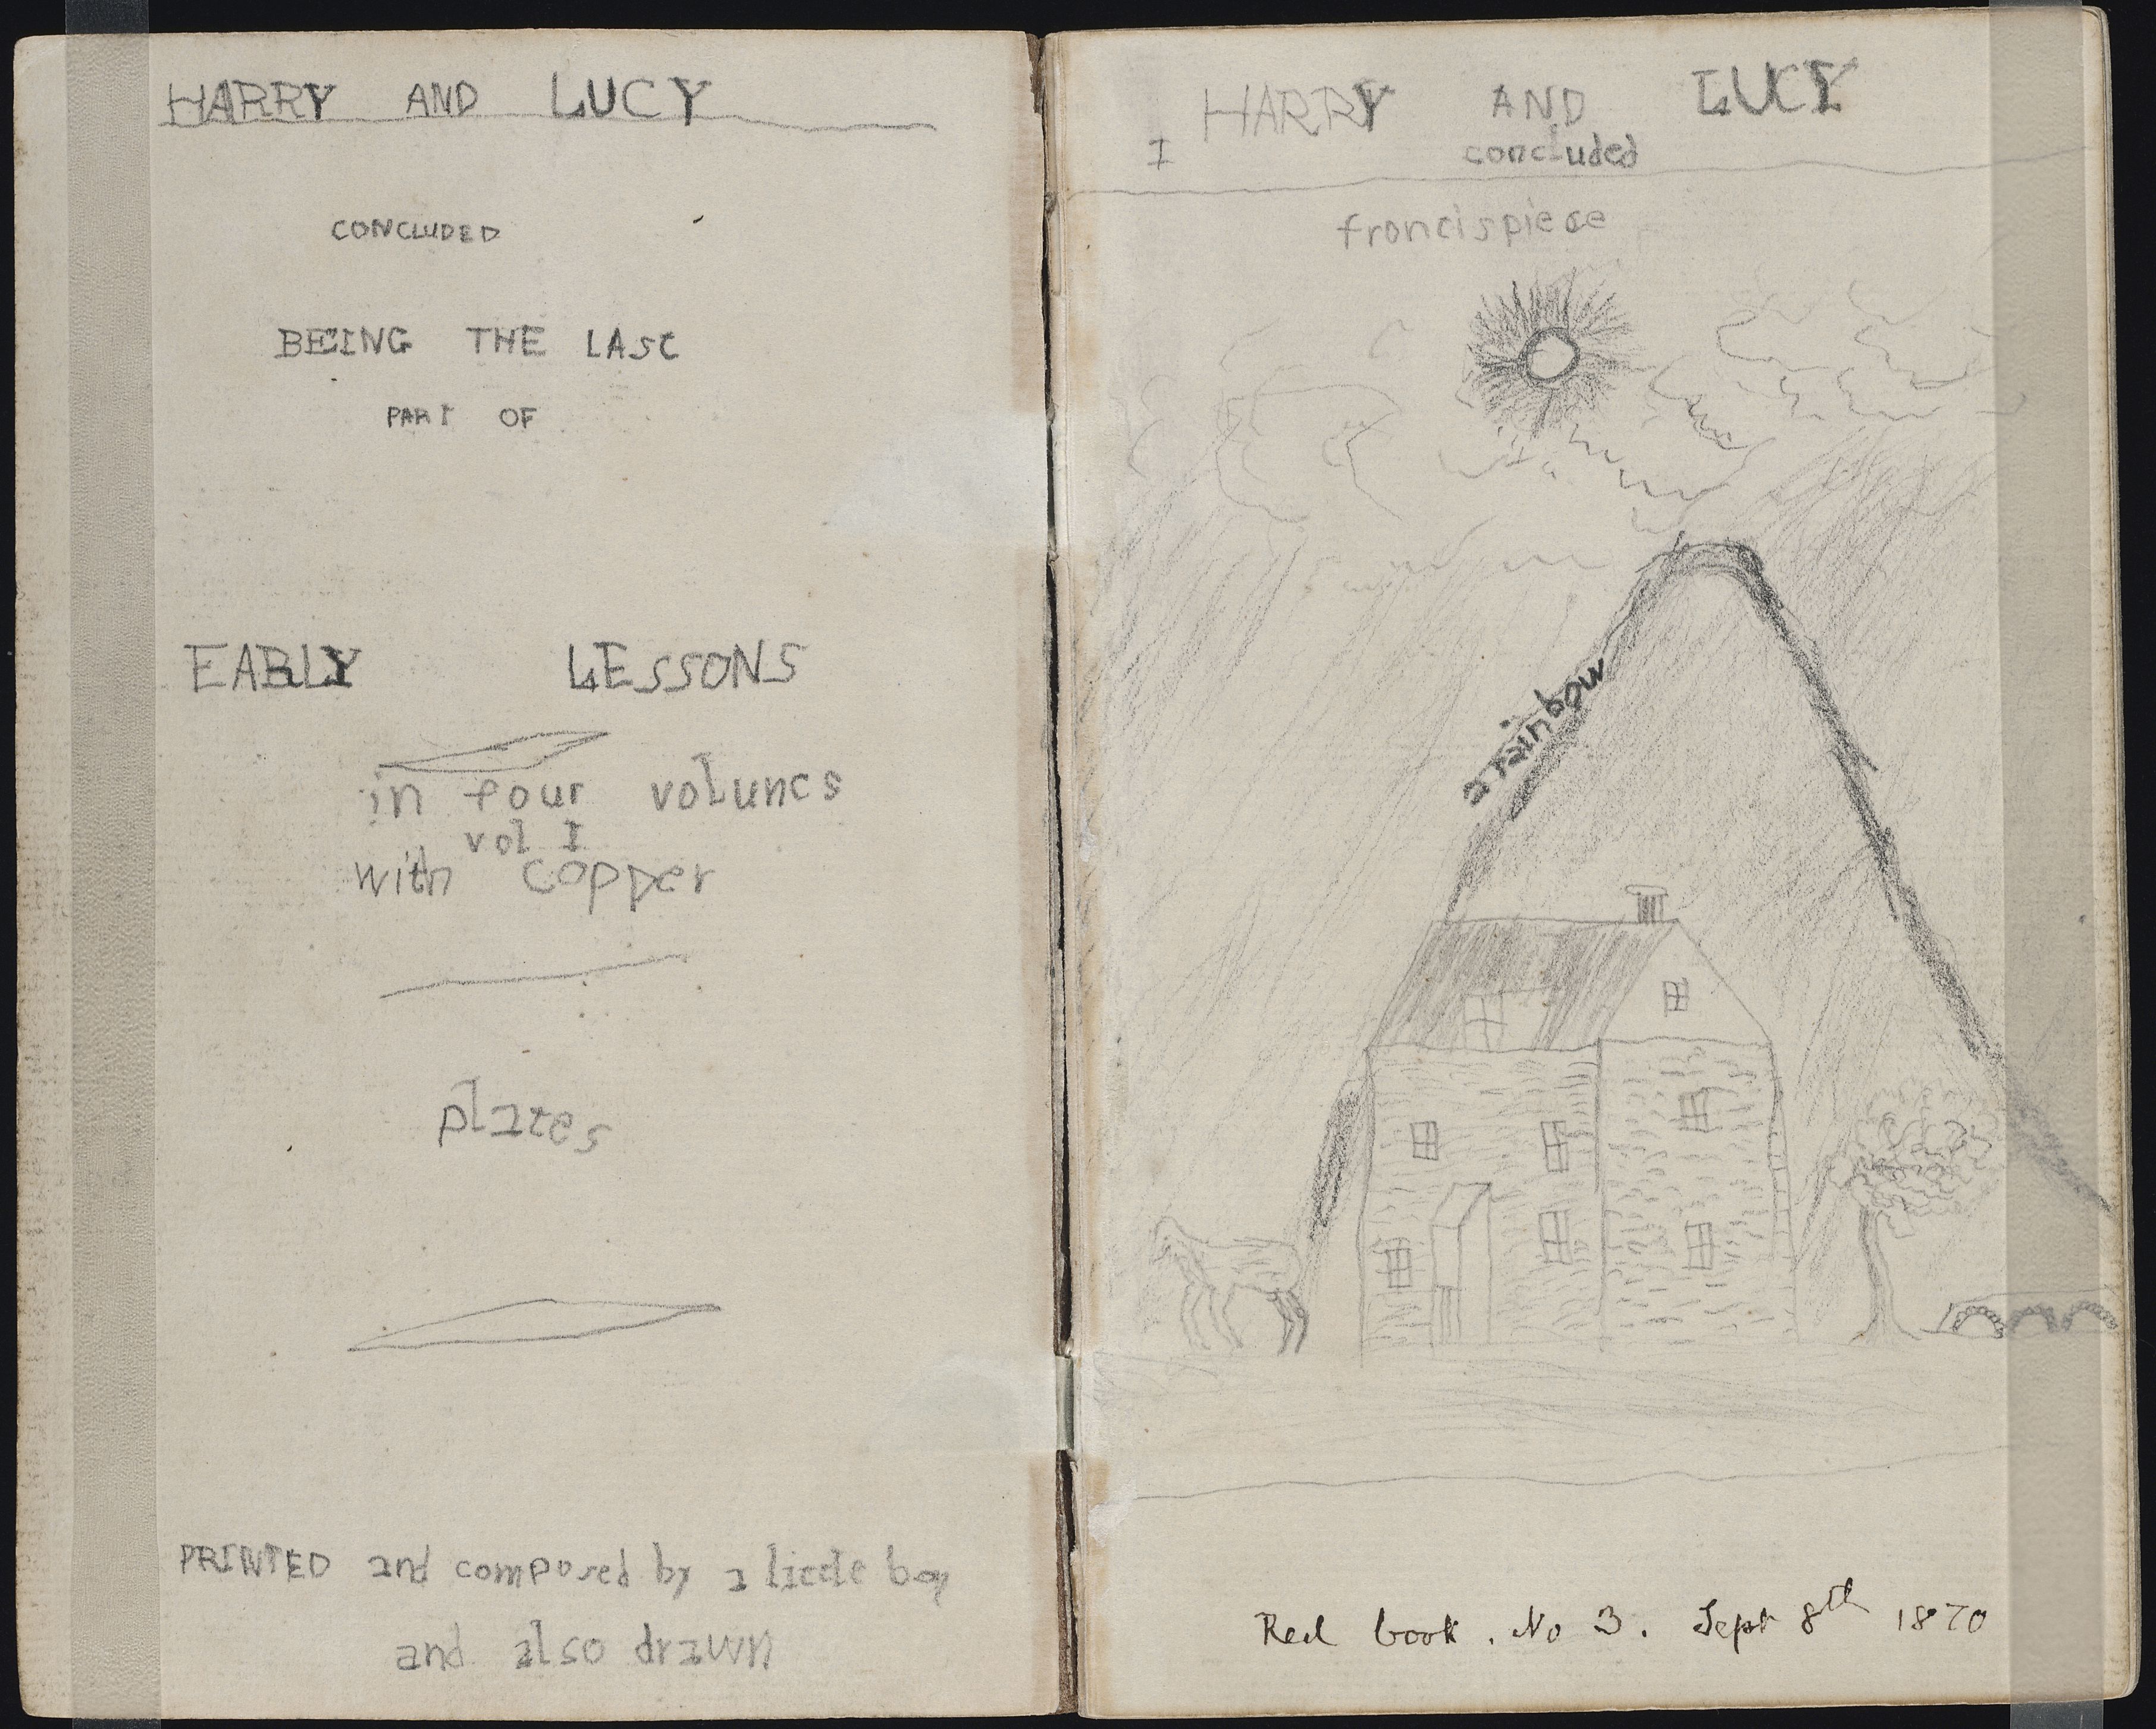 HARRY AND LUCY
CONCLUDED
BEING THE LAST
PART OF
EARLY LESSONS
in four volumes
vol I
with copper
plates
PRINTED and composed by a little boy
and also drawn
HARRY AND LUCY
I concluded
froncispiece
a rainbow
Red book. No 3. Sept 8th 1870